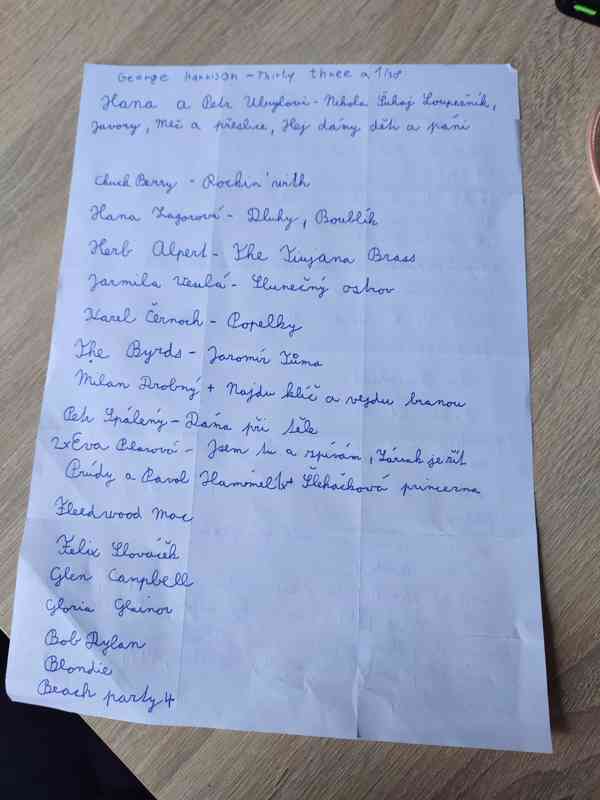 George Harrison - Thirty three a 1/3
Hana a Petr Ulrychovi - Nikola Šuhaj Loupežník,
Javory, Meč a přeslice, Hej dámy děti a páni
Chuck Berry - Rockin' with
Hana Zagorová - Dluhy, Boublík
Herb Alpert - The Tiujana Brass
Jarmila Veselá - Slunečný ostrov
Karel Černoch - Popelky
The Byrds - Jaromír Tůma
Milan Drobný + Najdu klíč a vejdu branou
Petr Spálený - Dáma při těle
2x Eva Pilarová - Jsem tu a zpívám, Zázrak je žít
Prúdy a Pavol Hammel + Šlehačková princezna
Fleedwood Mac
Felix Slováček
Glen Canpbell
Gloria Glainor
Bob Dylan
Blondie
Beach party 4